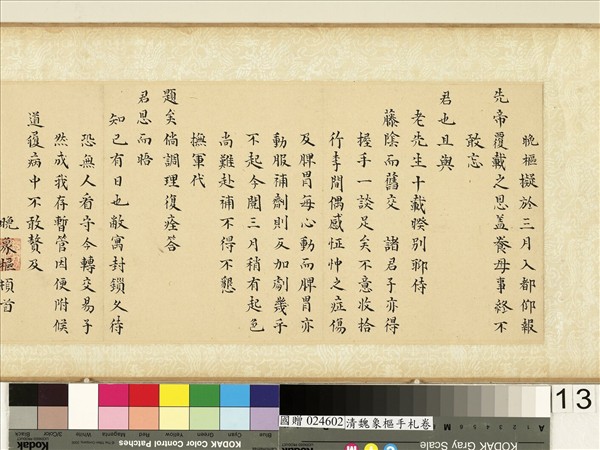 晚樞擬於三月入都仰報
先帝覆載之恩蓋養母事終不
敢忘
君也且與
老先生十載睽別聊侍
藤陰而舊交諸君子亦得
握手一談足矣不意收拾
行李間偶感怔忡之症傷
及脾胃每心動而脾胃亦
動服補劑則反加劇幾乎
不起今閱三月稍有起色
尚難赴補不得不懇
撫軍代
題矣倘調理復痊答
君恩而晤
知己有日也敝寓封鎖久待
恐無人看守今轉交易子
然成我存暫管因便附候
道履病中不敢贅及
晚象樞頓首
國贈 024602 清魏象樞手札卷
13
Kodak
KODAK Color Control Patches
Blue
Cyan
Green
Yellow
Red
Magenta
White
3/Color
Black
KODAK Gray Scale
A 1 2 3 4 5 6 M 8 9 10 11 12 13 14 15 B 17 18 19